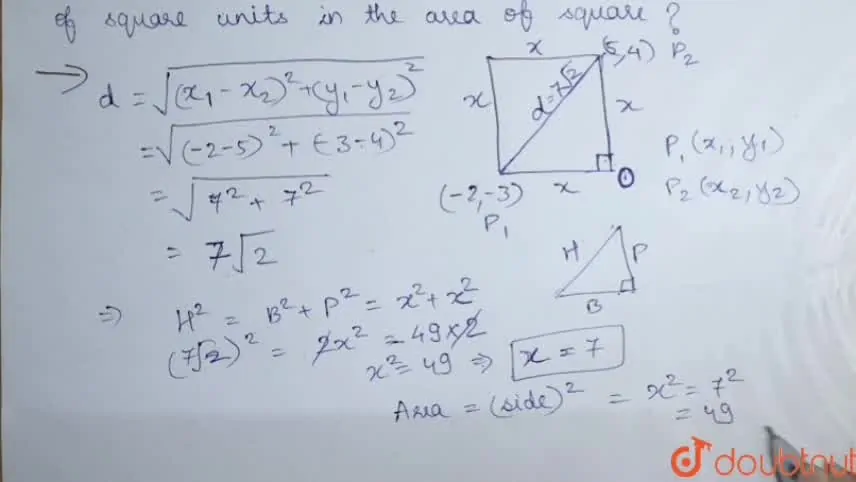 of square units in the area of square?
d = √(x₁ - x₂)² + (y₁ - y₂)²
= √(-2-5)² + (-3-4)²
= √7² + 7²
= 7√2
x
(5,4) P₂
x
d=7√2
x
(-2,-3)
x
P₁
P₁(x₁, y₁)
P₂(x₂, y₂)
H
P
B
⇒ H² = B² + P² = x² + x²
(7√2)² = 2x² = 49×2
x² = 49 ⇒ x = 7
Area = (side)² = x² = 7²
= 49
doubtnut